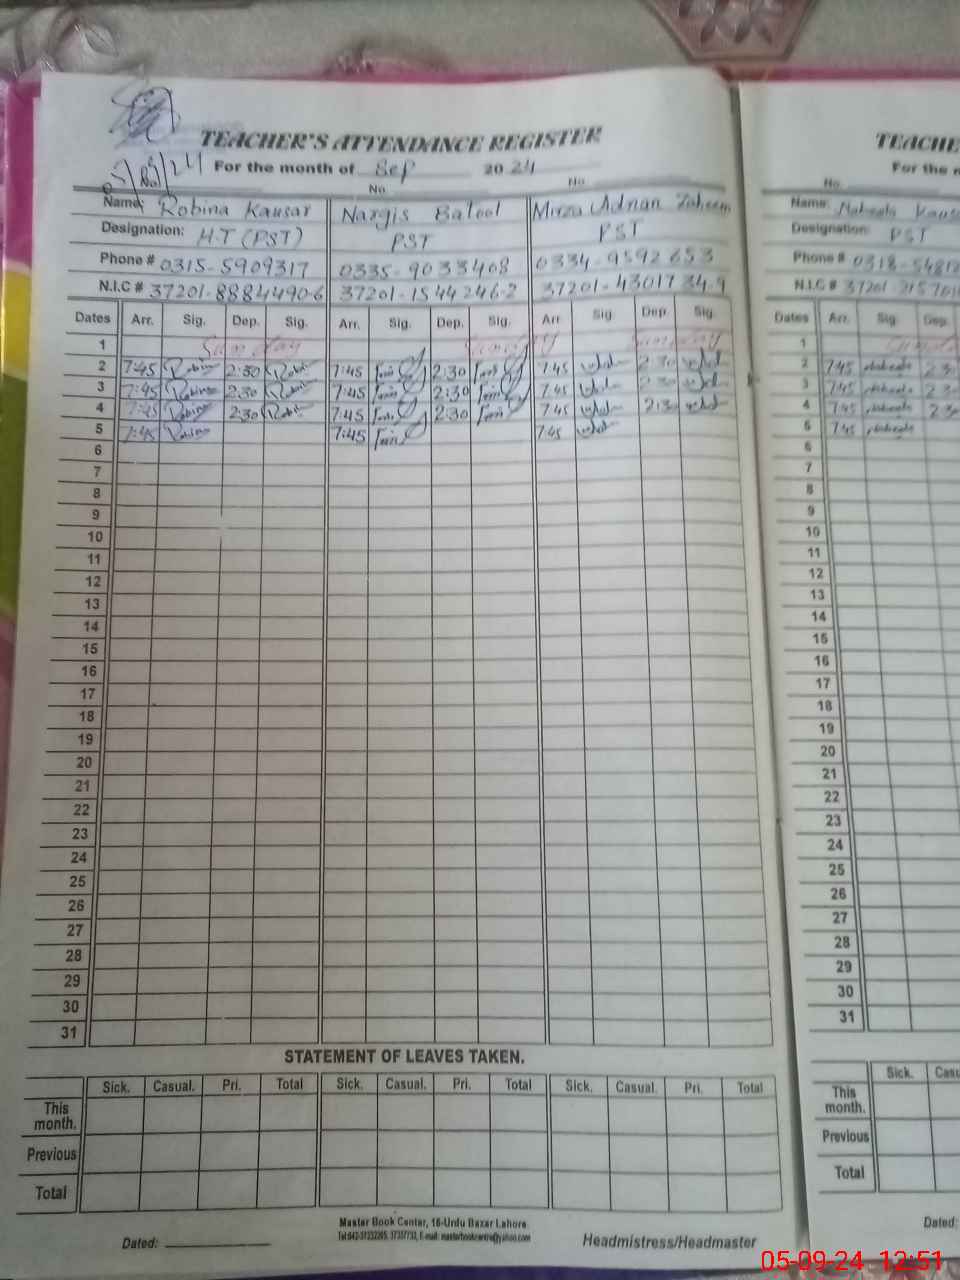 TEACHER'S ATTENDANCE REGISTER
For the month of Sep 2024
No. No. No.
Name: Robina Kausar Nargis Batool Mirza Adnan Zaheem
Designation: H.T (PST) PST PST
Phone # 0315-5909317 0335-9033408 0334-9592653
N.I.C # 37201-8884490-6 37201-1544246-2 37201-4301734-9
Dates Arr. Sig. Dep. Sig. Arr. Sig. Dep. Sig. Arr Sig. Dep. Sig.
1 Sunday Sunday Sunday
2 7:45 Robina 2:30 Robi 7:45 2:30 7:45 2:30
3 7:45 Robina 2:30 Robi 7:45 2:30 7:45 2:30
4 7:45 Robina 2:30 Robi 7:45 2:30 7:45 2:3
5 7:45 Robina 7:45 7:45
6
7
8
9
10
11
12
13
14
15
16
17
18
19
20
21
22
23
24
25
26
27
28
29
30
31
STATEMENT OF LEAVES TAKEN.
Sick. Casual. Pri. Total Sick. Casual. Pri. Total Sick. Casual. Pri. Total
This month.
Previous
Total
Master Book Center, 16-Urdu Bazar Lahore.
Dated: Headmistress/Headmaster
TEACHE
For the m
No.
Name: Kaus
Designation: PST
Phone # 0318-5481
N.I.C # 37201
Dates Arr. Sig. Dep.
1
2 7:45 2:3
3 7:45 2:3
4 7:45 2:3
5 7:45
6
7
8
9
10
11
12
13
14
15
16
17
18
19
20
21
22
23
24
25
26
27
28
29
30
31
Sick. Casu
This month.
Previous
Total
Dated:
05-09-24 12:51